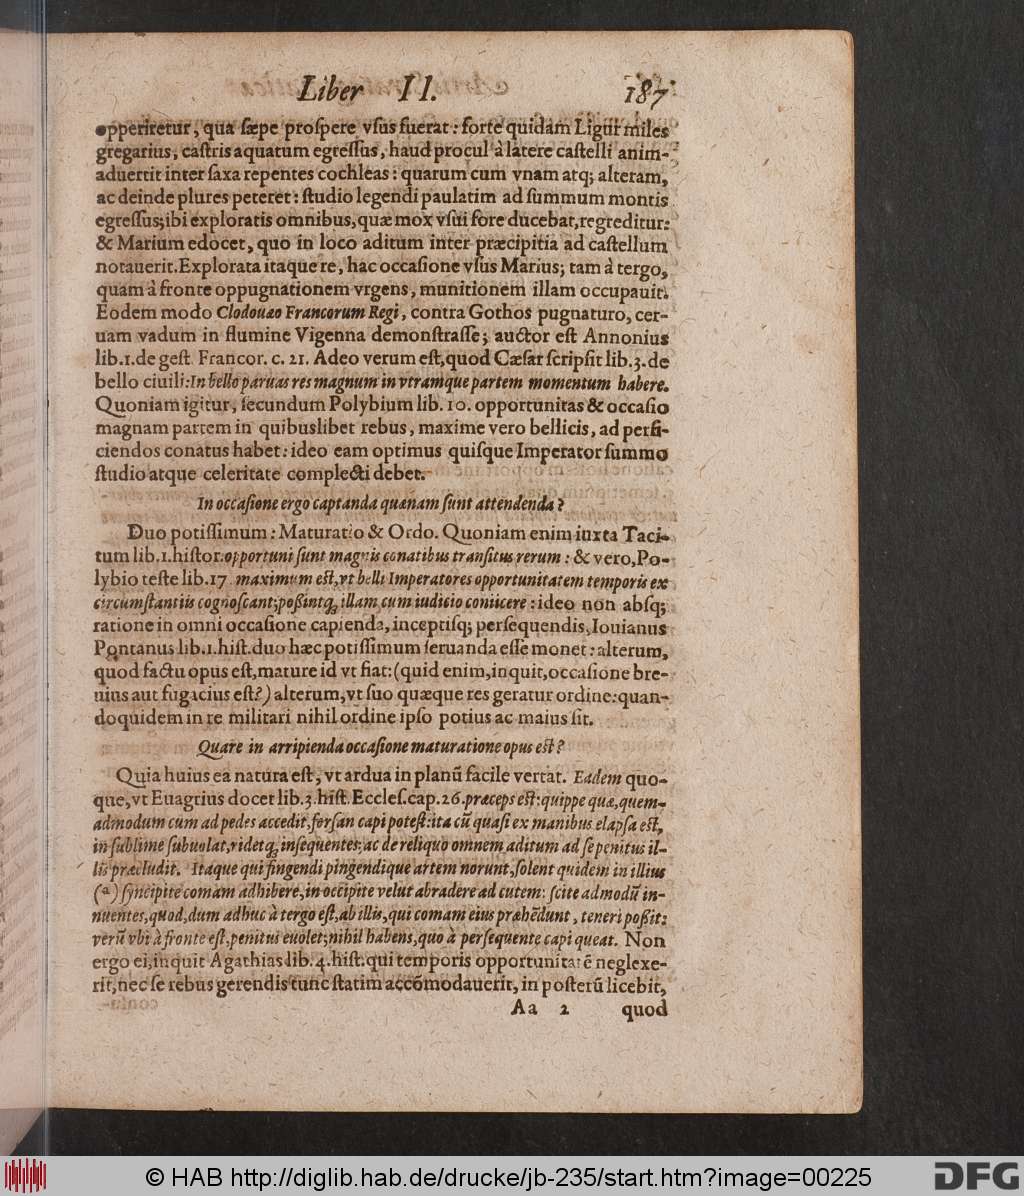 Liber II. 187
opperiretur, qua sæpe prospere vsus fuerat: forte quidam Ligur miles
gregarius, castris aquatum egressus, haud procul à latere castelli anim-
aduertit inter saxa repentes cochleas: quarum cum vnam atq; alteram,
ac deinde plures peteret: studio legendi paulatim ad summum montis
egressus; ibi exploratis omnibus, quæ mox vsui fore ducebat, regreditur:
& Marium edocet, quo in loco aditum inter præcipitia ad castellum
notauerit. Explorata itaque re, hac occasione vsus Marius; tam à tergo,
quam à fronte oppugnationem vrgens, munitionem illam occupauit.
Eodem modo Clodouæo Francorum Regi, contra Gothos pugnaturo, cer-
uam vadum in flumine Vigenna demonstrasse; auctor est Annonius
lib. 1. de gest. Francor. c. 21. Adeo verum est, quod Cæsar scripsit lib. 3. de
bello ciuili: In bello paruas res magnum in vtramque partem momentum habere.
Quoniam igitur, secundum Polybium lib. 10. opportunitas & occasio
magnam partem in quibuslibet rebus, maxime vero bellicis, ad perfi-
ciendos conatus habet: ideo eam optimus quisque Imperator summo
studio atque celeritate complecti debet.
In occasione ergo captanda quænam sunt attendenda?
Duo potissimum: Maturatio & Ordo. Quoniam enim iuxta Taci-
tum lib. 1. histor. opportuni sunt magnis conatibus transitus rerum: & vero, Po-
lybio teste lib. 17. maximum est, vt belli Imperatores opportunitatem temporis ex
circumstantiis cognoscant; poßintq; illam cum iudicio coniicere: ideo non absq;
ratione in omni occasione capienda, inceptisq; persequendis, Iouianus
Pontanus lib. 1. hist. duo hæc potissimum seruanda esse monet: alterum,
quod factu opus est, mature id vt fiat: (quid enim, inquit, occasione bre-
uius aut fugacius est?) alterum, vt suo quæque res geratur ordine: quan-
doquidem in re militari nihil ordine ipso potius ac maius sit.
Quare in arripienda occasione maturatione opus est?
Quia huius ea natura est, vt ardua in planũ facile vertat. Eadem quo-
que, vt Euagrius docet lib. 3. hist. Eccles. cap. 26. præceps est: quippe quæ, quem-
admodum cum ad pedes accedit, forsan capi potest: ita cũ quasi ex manibus elapsa est,
in sublime subuolat, ridetq; insequentes; ac de reliquo omnem aditum ad se penitus il-
lis præcludit. Itaque qui fingendi pingendique artem norunt, solent quidem in illius
(a) syncipite comam adhibere, in occipite velut abradere ad cutem: scite admodũ in-
nuentes, quod, dum adhuc à tergo est, ab illis, qui comam eius præhẽdunt, teneri poßit:
verũ vbi à fronte est, penitus euolet; nihil habens, quo à persequente capi queat. Non
ergo ei, inquit Agathias lib. 4. hist. qui temporis opportunitatẽ neglexe-
rit, nec se rebus gerendis tunc statim accõmodauerit, in posterũ licebit,
Aa 2 quod
© HAB http://diglib.hab.de/drucke/jb-235/start.htm?image=00225
DFG